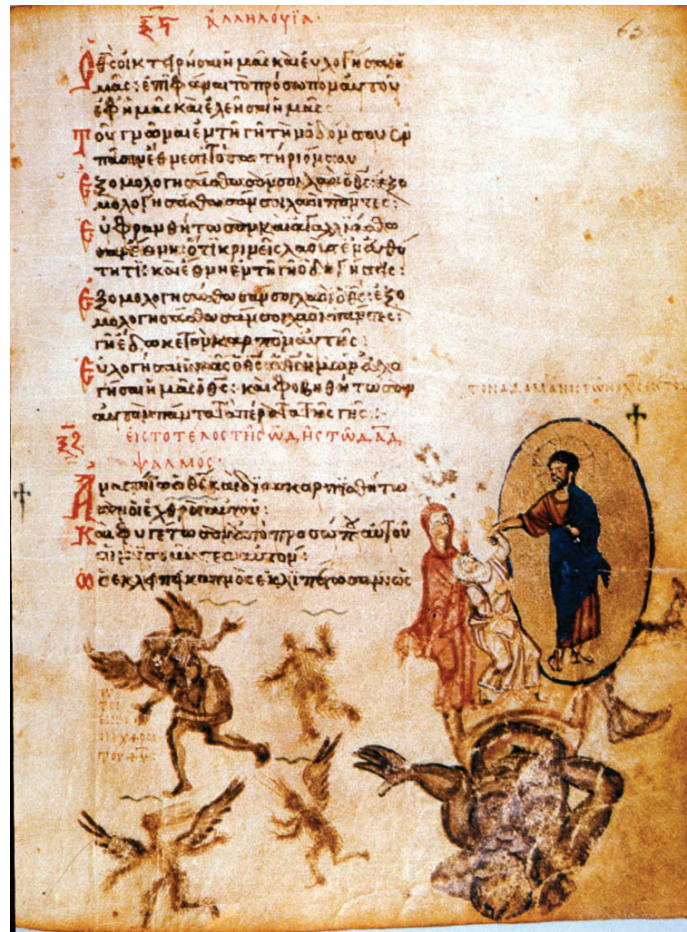 ξϛ ἀλληλούϊα·
63
Ὁ θς οἰκτειρήσαι ἡμᾶς καὶ εὐλογήσαι ἡ
μᾶς: ἐπιφάναι τὸ πρόσωπον αὐτοῦ
ἐφ ἡμᾶς καὶ ἐλεήσαι ἡμᾶς:
Τοῦ γνῶναι ἐν τῇ γῇ τὴν ὁδόν σου ἐν
πᾶσιν ἔθνεσι τὸ σωτήριόν σου
Ἐξομολογησάσθωσάν σοι λαοὶ ὁ θς: ἐξο
μολογησάσθωσάν σοι λαοὶ πάντες:
Εὐφρανθήτωσαν καὶ ἀγαλλιάσθω
σαν ἔθνη: ὅτι κρινεῖς λαοὺς ἐν εὐθύ
τητι: καὶ ἔθνη ἐν τῇ γῇ ὁδηγήσεις:
Ἐξομολογησάσθωσάν σοι λαοὶ ὁ θς: ἐξο
μολογησάσθωσάν σοι λαοὶ πάντες:
γῆ ἔδωκε τὸν καρπὸν αὐτῆς:
Εὐλογήσαι ἡμᾶς ὁ θς ὁ θς ἡμῶν εὐλο
γήσαι ἡμᾶς ὁ θς: καὶ φοβηθήτωσαν
αὐτὸν πάντα τὰ πέρατα τῆς γῆς:
ξζ εἰς τὸ τέλος τῆς ὠδῆς τῶ δαδ
ψαλμος
τὸν αδαμ ανιστῶν ὁ χς ἐκ τοῦ
Ἀναστήτω ὁ θς καὶ διασκορπισθήτω
σαν οἱ ἐχθροὶ αὐτοῦ:
Καὶ φυγέτωσαν ἀπὸ προσώπου αὐτοῦ
οἱ μισοῦντες αὐτόν
Ὡς ἐκλείπει καπνὸς ἐκλιπέτωσαν ὡς